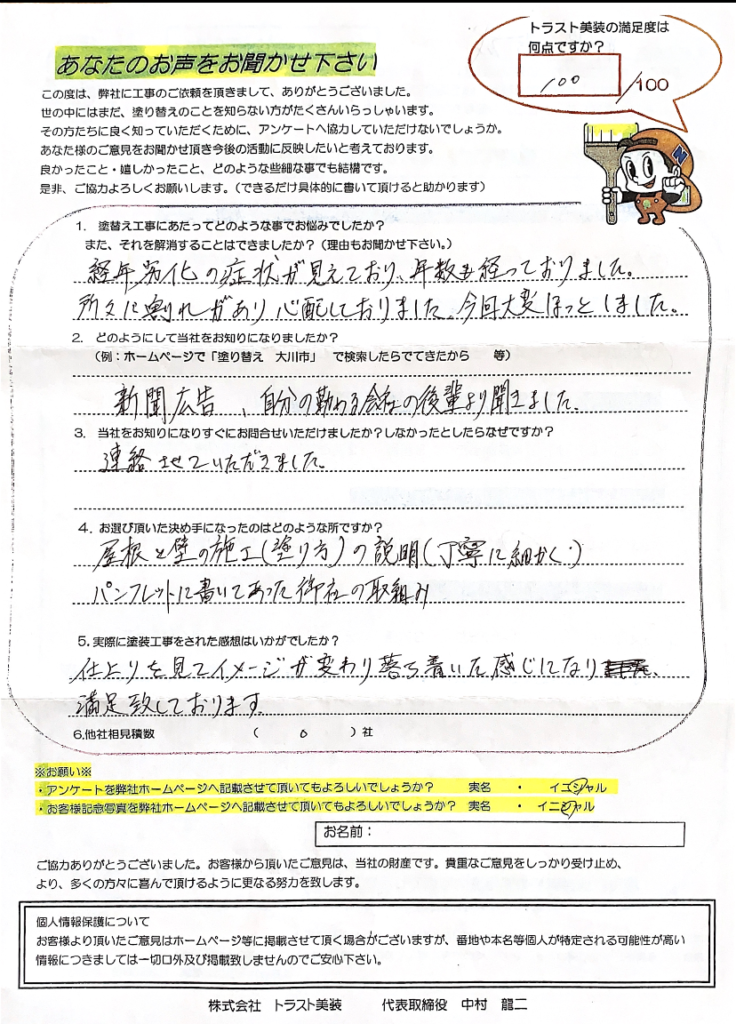 トラスト美装の満足度は
何点ですか?
100 /100
あなたのお声をお聞かせ下さい
この度は、弊社に工事のご依頼を頂きまして、ありがとうございました。
世の中にはまだ、塗り替えのことを知らない方がたくさんいらっしゃいます。
その方たちに良く知っていただくために、アンケートへ協力していただけないでしょうか。
あなた様のご意見をお聞かせ頂き今後の活動に反映したいと考えております。
良かったこと・嬉しかったこと、どのような些細な事でも結構です。
是非、ご協力よろしくお願いします。(できるだけ具体的に書いて頂けると助かります)
1. 塗替え工事にあたってどのような事でお悩みでしたか?
また、それを解消することはできましたか?(理由もお聞かせ下さい。)
経年劣化の症状が見えており、年数も経っておりました。
所々に割れがあり心配しておりました。今回大変ほっとしました。
2. どのようにして当社をお知りになりましたか?
(例:ホームページで「塗り替え 大川市」で検索したらでてきたから 等)
新聞広告、自分の勤める会社の後輩より聞きました。
3. 当社をお知りになりすぐにお問合せいただけましたか?しなかったとしたらなぜですか?
連絡させていただきました。
4. お選び頂いた決め手になったのはどのような所ですか?
屋根と壁の施工(塗り方)の説明(丁寧に細かく・)
パンフレットに書いてあった御社の取組み
5.実際に塗装工事をされた感想はいかがでしたか?
仕上りを見てイメージが変わり落ち着いた感じになり、
満足致しております。
6.他社相見積数 ( 0 )社
※お願い※
・アンケートを弊社ホームページへ記載させて頂いてもよろしいでしょうか? 実名 ・ イニシャル
・お客様記念写真を弊社ホームページへ記載させて頂いてもよろしいでしょうか? 実名 ・ イニシャル
お名前:
ご協力ありがとうございました。お客様から頂いたご意見は、当社の財産です。貴重なご意見をしっかり受け止め、
より、多くの方々に喜んで頂けるように更なる努力を致します。
個人情報保護について
お客様より頂いたご意見はホームページ等に掲載させて頂く場合がございますが、番地や本名等個人が特定される可能性が高い
情報につきましては一切口外及び掲載致しませんのでご安心下さい。
株式会社 トラスト美装 代表取締役 中村 龍二